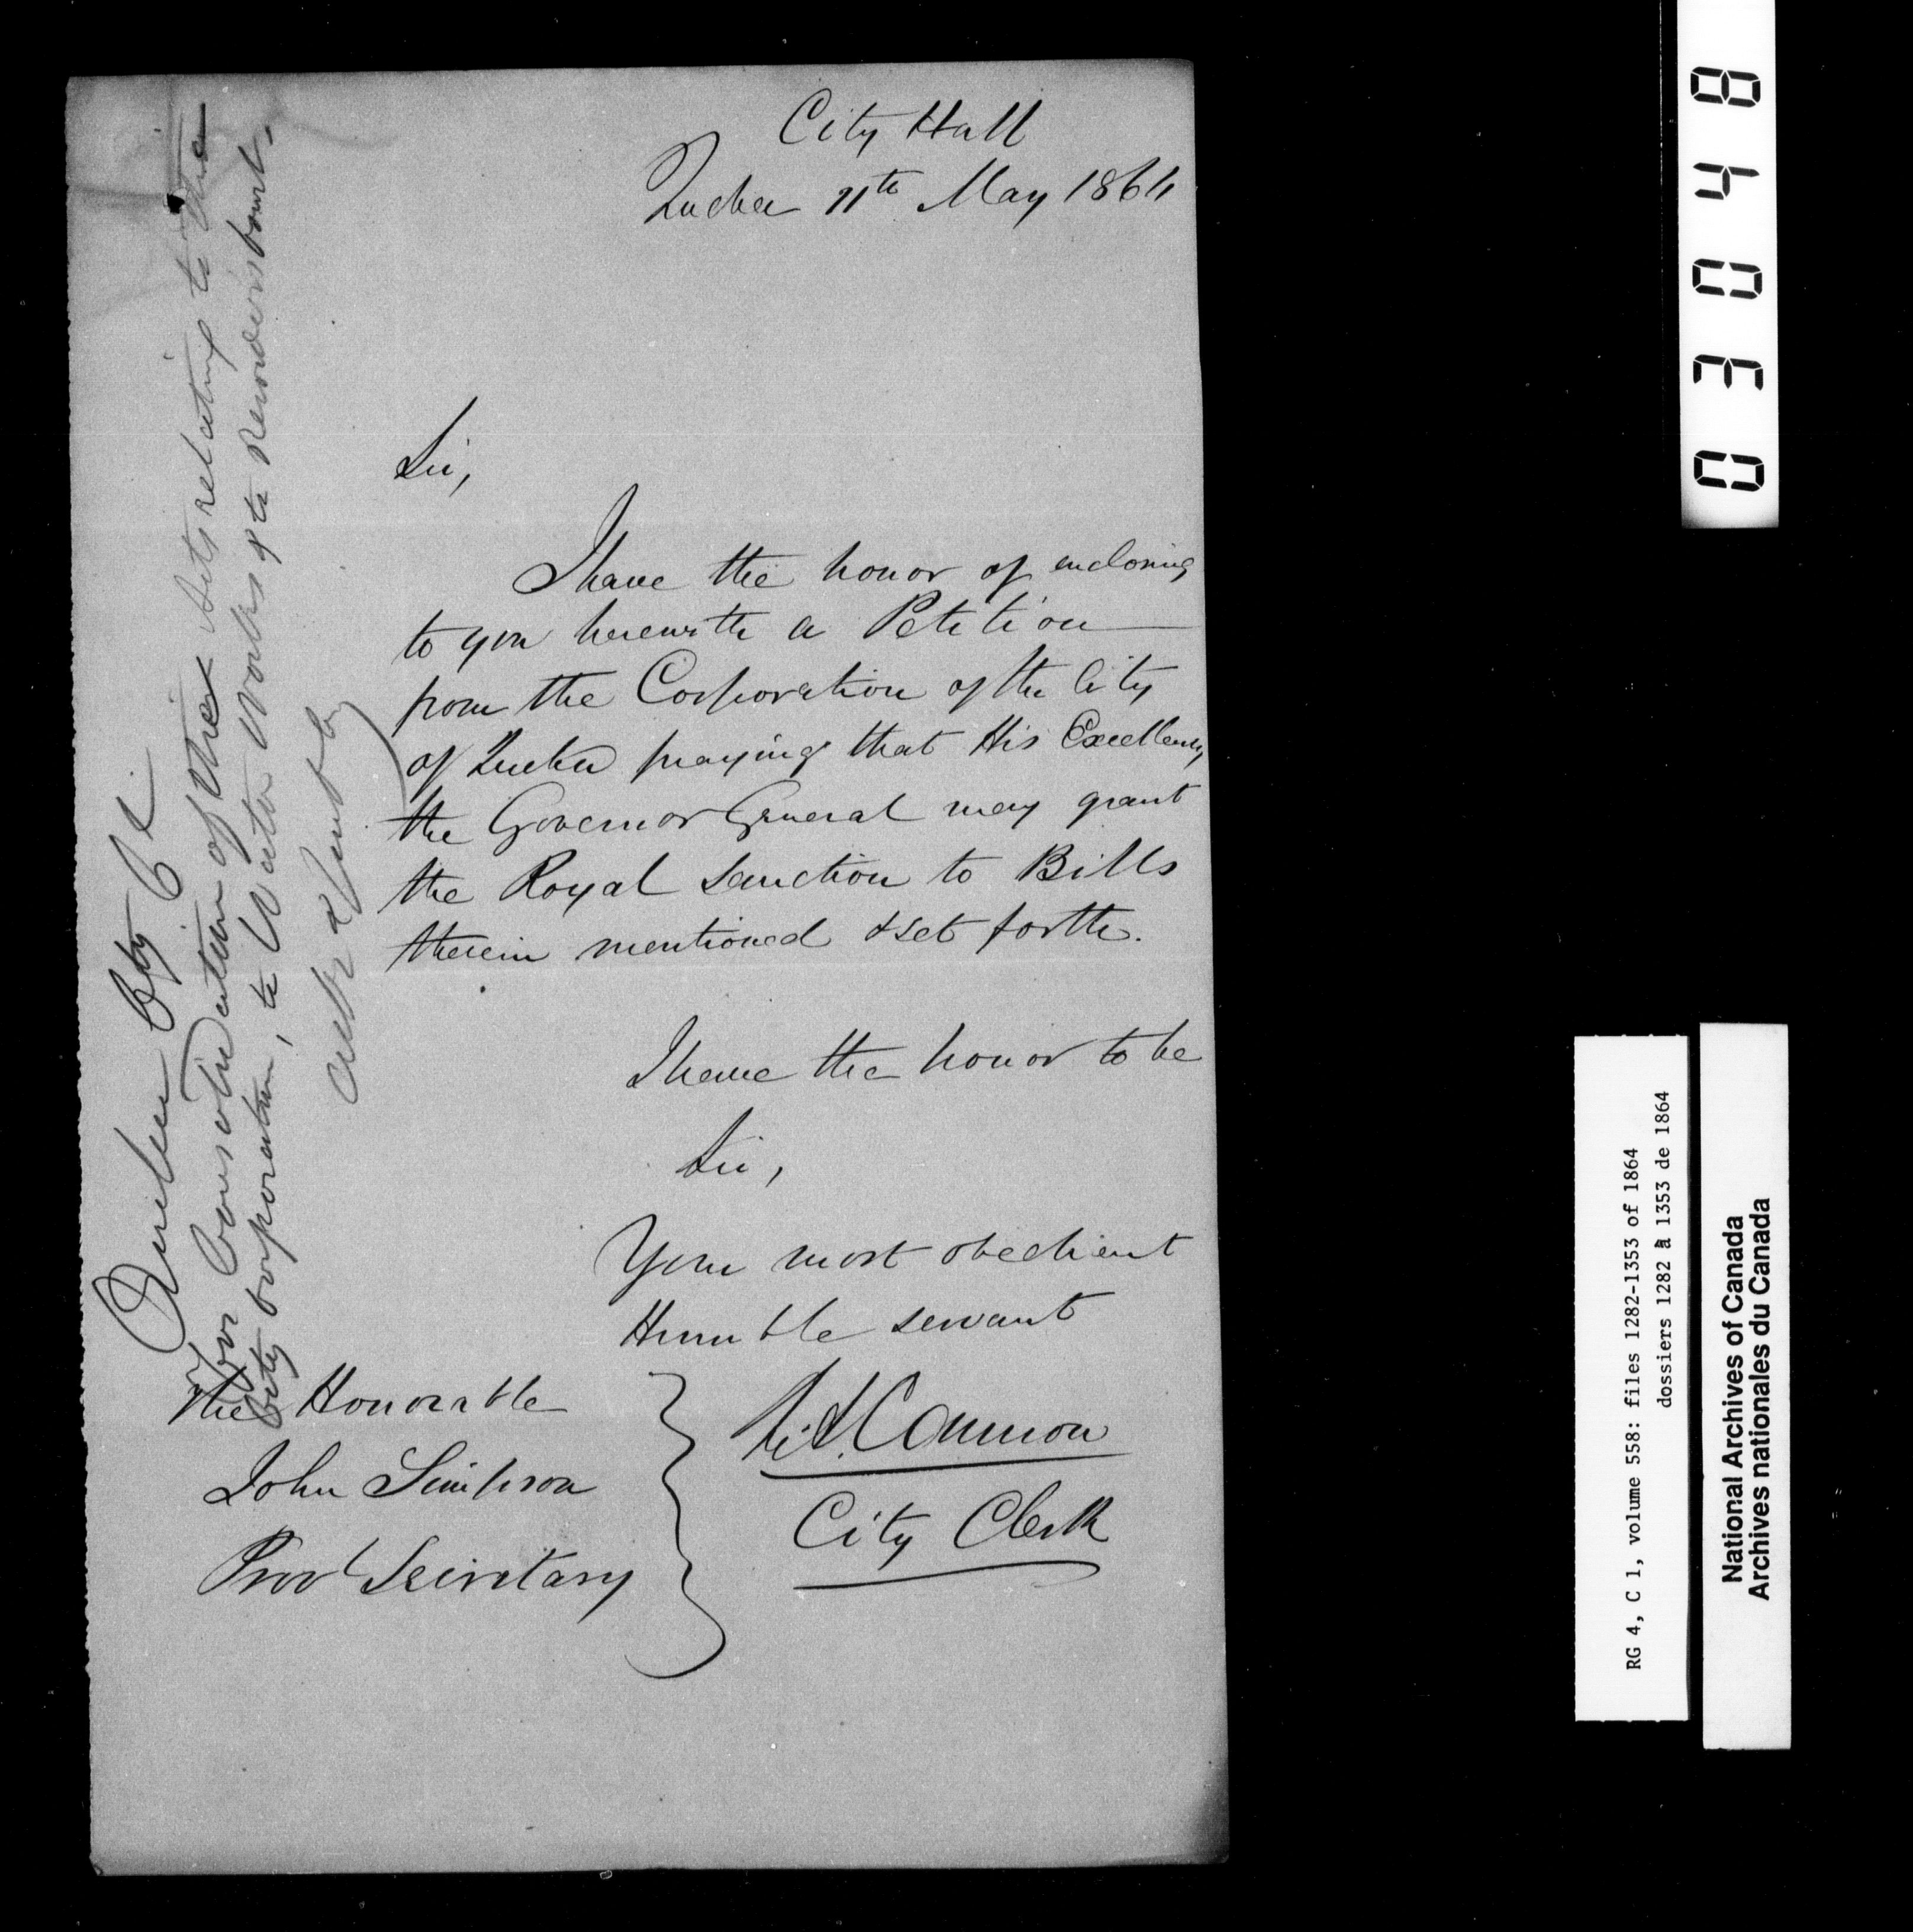 City Hall
Quebec 11th May 1864
Sir,
I have the honor of enclosing
to you herewith a Petition
from the Corporation of the City
of Quebec praying that His Excellency
the Governor General may grant
the Royal Sanction to Bills
therein mentioned & set forth.
I have the honor to be
Sir,
Your most obedient
Humble servant
Cannon
City Clerk
The Honorable
John Simpson
Provl Secretary
Quebec City Cl
For Consolidation of the Acts relating to the
City Corporation, to Water Works & to Recorder's Court,
03048
RG 4, C 1, volume 558: files 1282-1353 of 1864
dossiers 1282 à 1353 de 1864
National Archives of Canada
Archives nationales du Canada